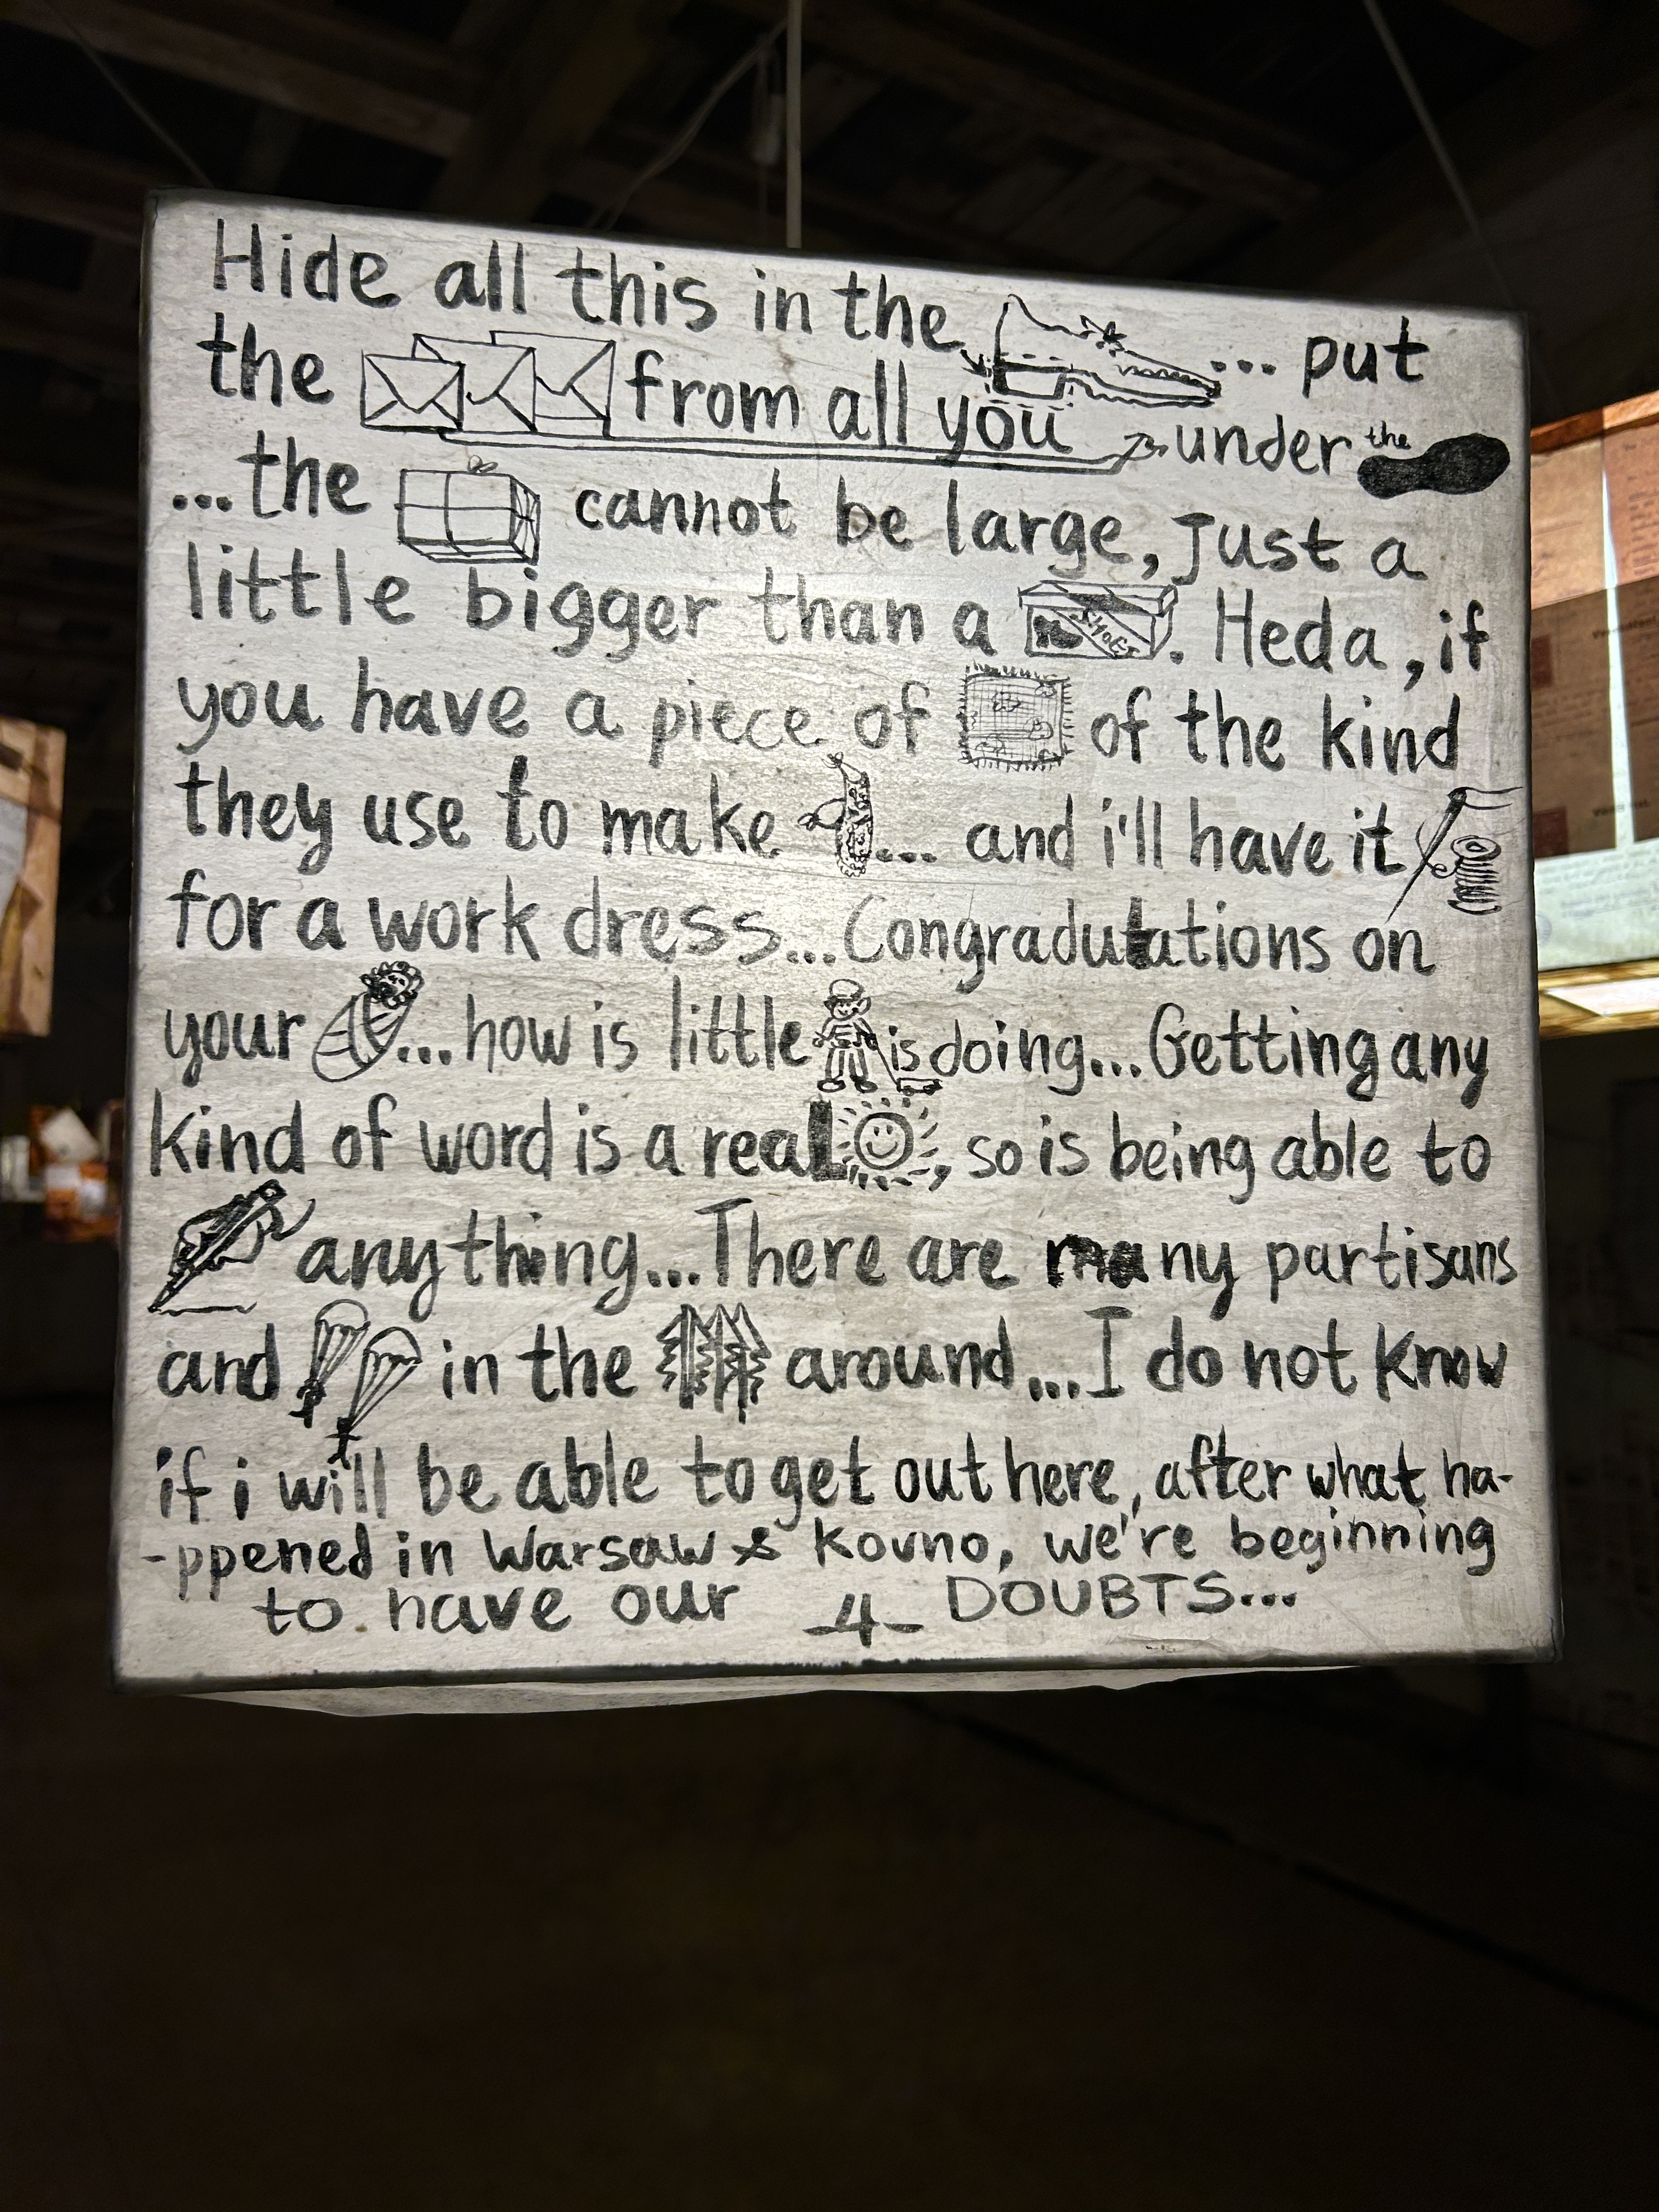 Hide all this in the ... put
the from all you under the
...the cannot be large, just a
little bigger than a SHOES. Heda, if
you have a piece of of the kind
they use to make ... and i'll have it
for a work dress... Congradutations on
your ... how is little is doing... Getting any
kind of word is a real , so is being able to
anything... There are many partisans
and in the around ... I do not know
if i will be able to get out here, after what ha-
-ppened in Warsaw & Kovno, we're beginning
to have our DOUBTS...
-4-